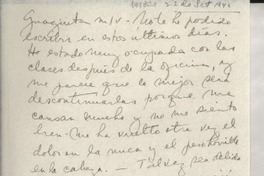 22 Set 194
Guaguita m/v - No te he podido
escribir en estos últimos días.
He estado muy ocupada con las
clases después de la oficina, y
me parece que lo mejor será
descontinuarlas porque me
cansan mucho y no me siento
bien. Me ha vuelto otra vez el
dolor en la nuca y el
en la cabeza. — Tal vez sea debido